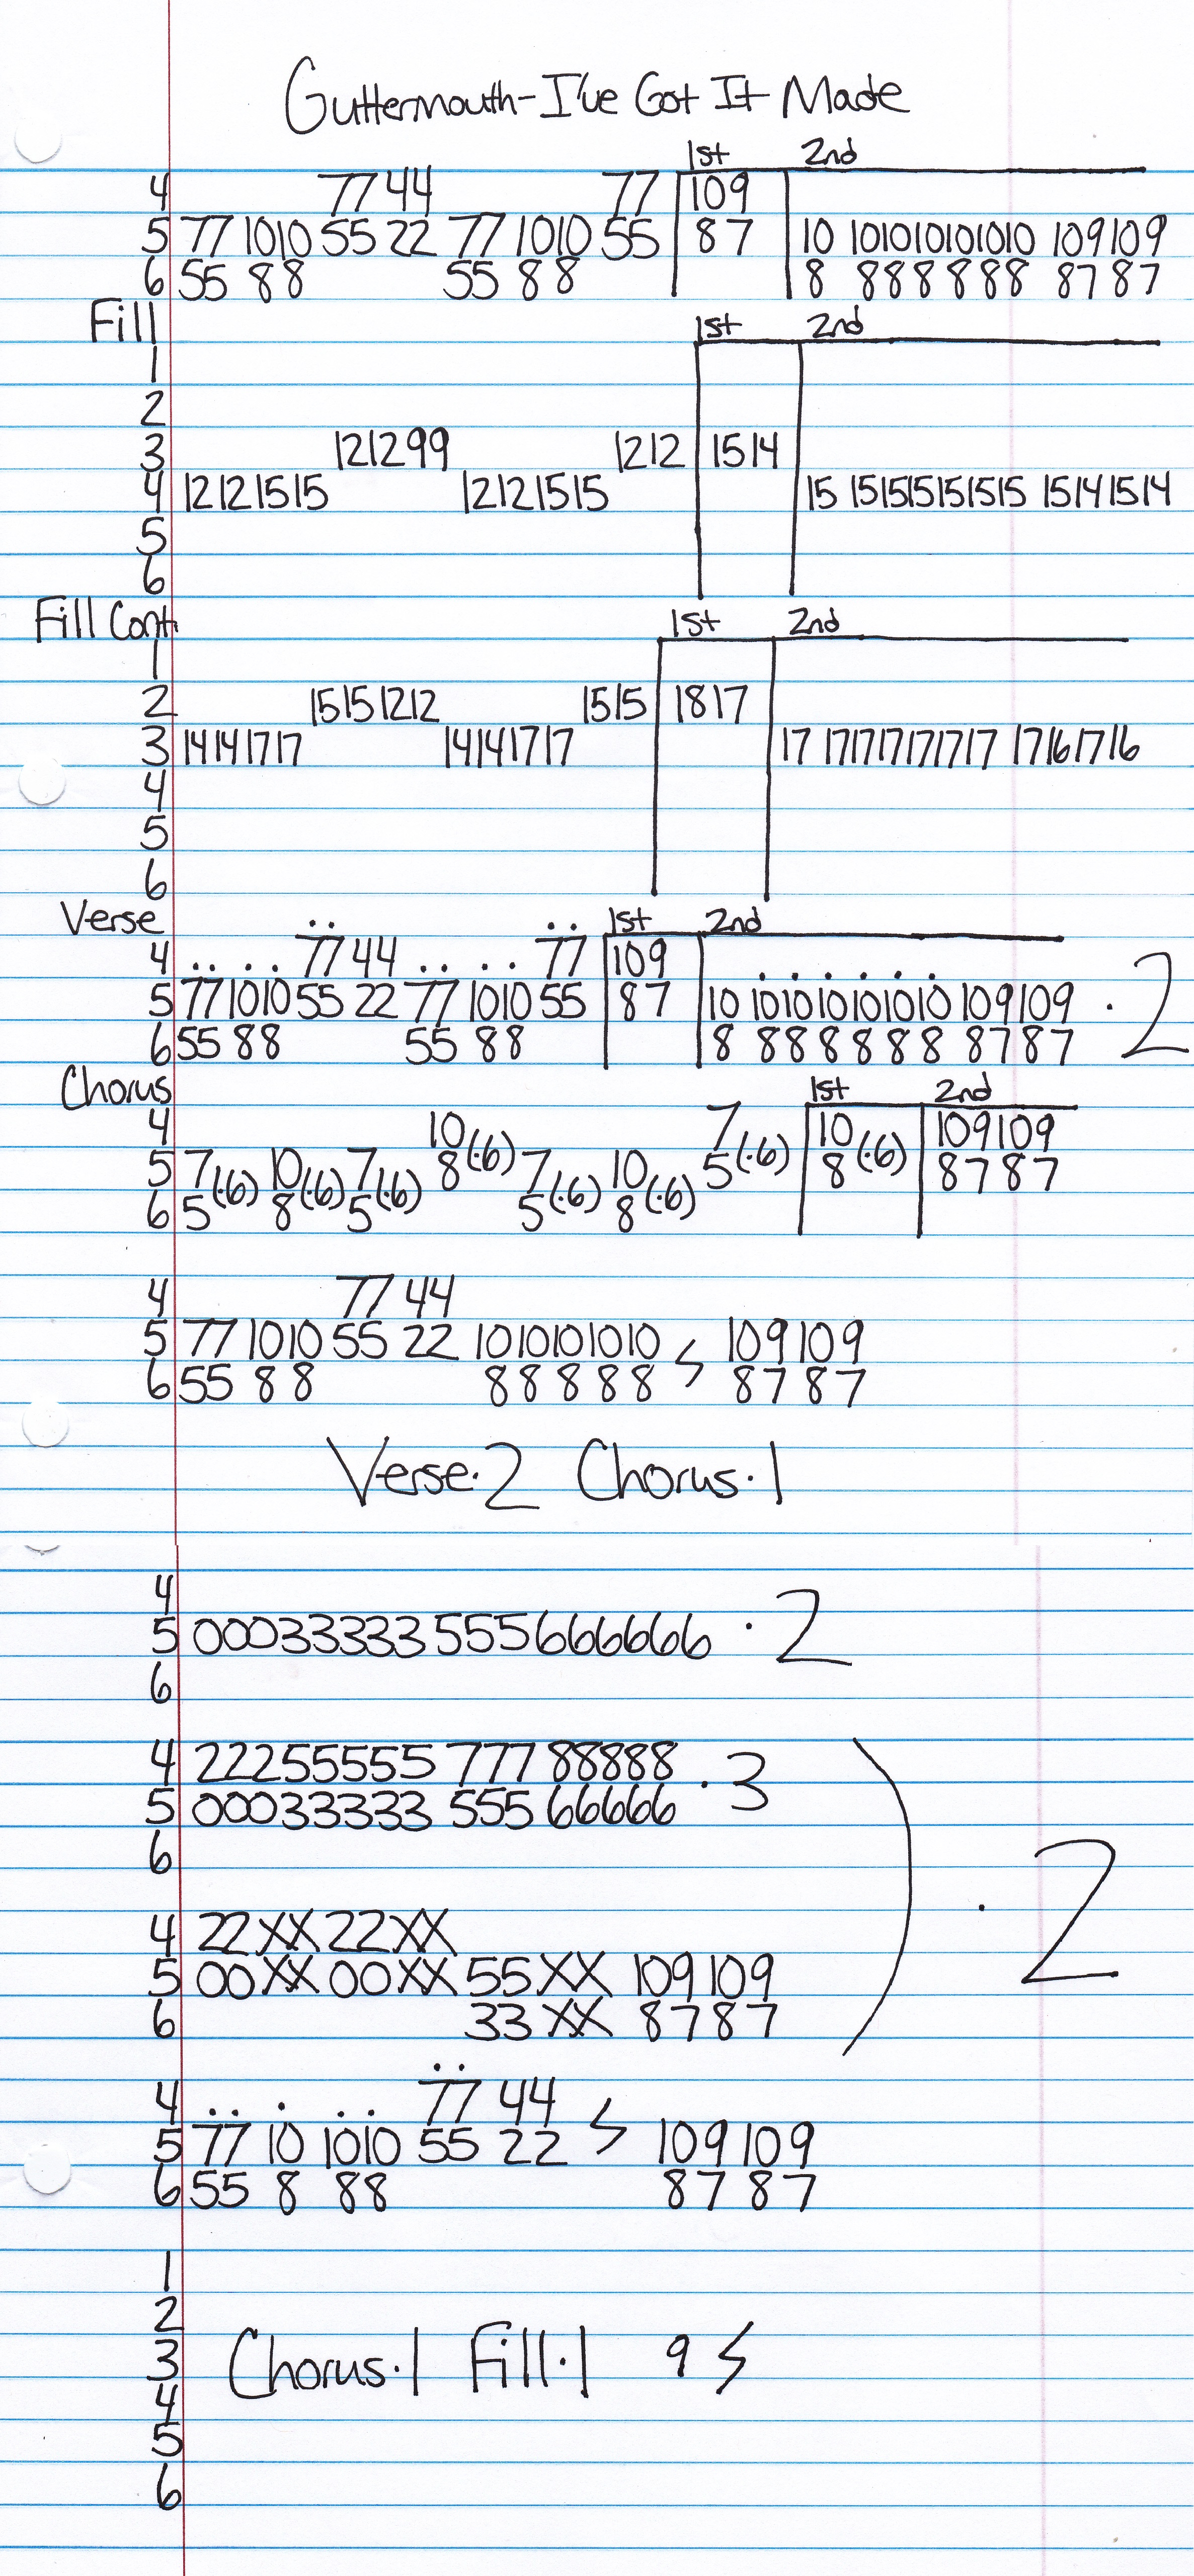 Guttermouth-I've Got It Made
1st 2nd
4 77 44 77 109
5 77 1010 55 22 77 1010 55 87 10 101010101010 109109
6 55 88 55 88 8 888888 87 87
Fill 1st 2nd
1
2
3 121299 1212 1514
4 12121515 12121515 15 151515151515 15141514
5
6
Fill Cont 1st 2nd
1
2 15151212 1515 1817
3 14141717 14141717 17 171717171717 17161716
4
5
6
Verse .. .. 1st 2nd
4 .. .. 77 44 .. .. 77 109 ......
5 77 1010 55 22 77 1010 55 87 10 101010101010 109109 · 2
6 55 88 55 88 8 888888 8787
Chorus 1st 2nd
4 10 7 10 109109
5 7(·6) 10(·6) 7(·6) 8(·6) 7(·6) 10(·6) 5(·6) 8(·6) 87 87
6 5 8 5 5 8
4 77 44
5 77 1010 55 22 1010101010 109109
6 55 88 88888 ϟ 87 87
Verse·2 Chorus·1
4
5 00033333555666666 · 2
6
4 22255555 777 88888 · 3
5 00033333 555 66666
6
· 2
4 22XX22XX
5 00XX00XX55XX 109109
6 33XX 8787
..
4 .. . .. 77 44
5 77 10 1010 55 22 ϟ 109109
6 55 8 88 87 87
1
2
3 Chorus·1 Fill·1 9 ϟ
4
5
6